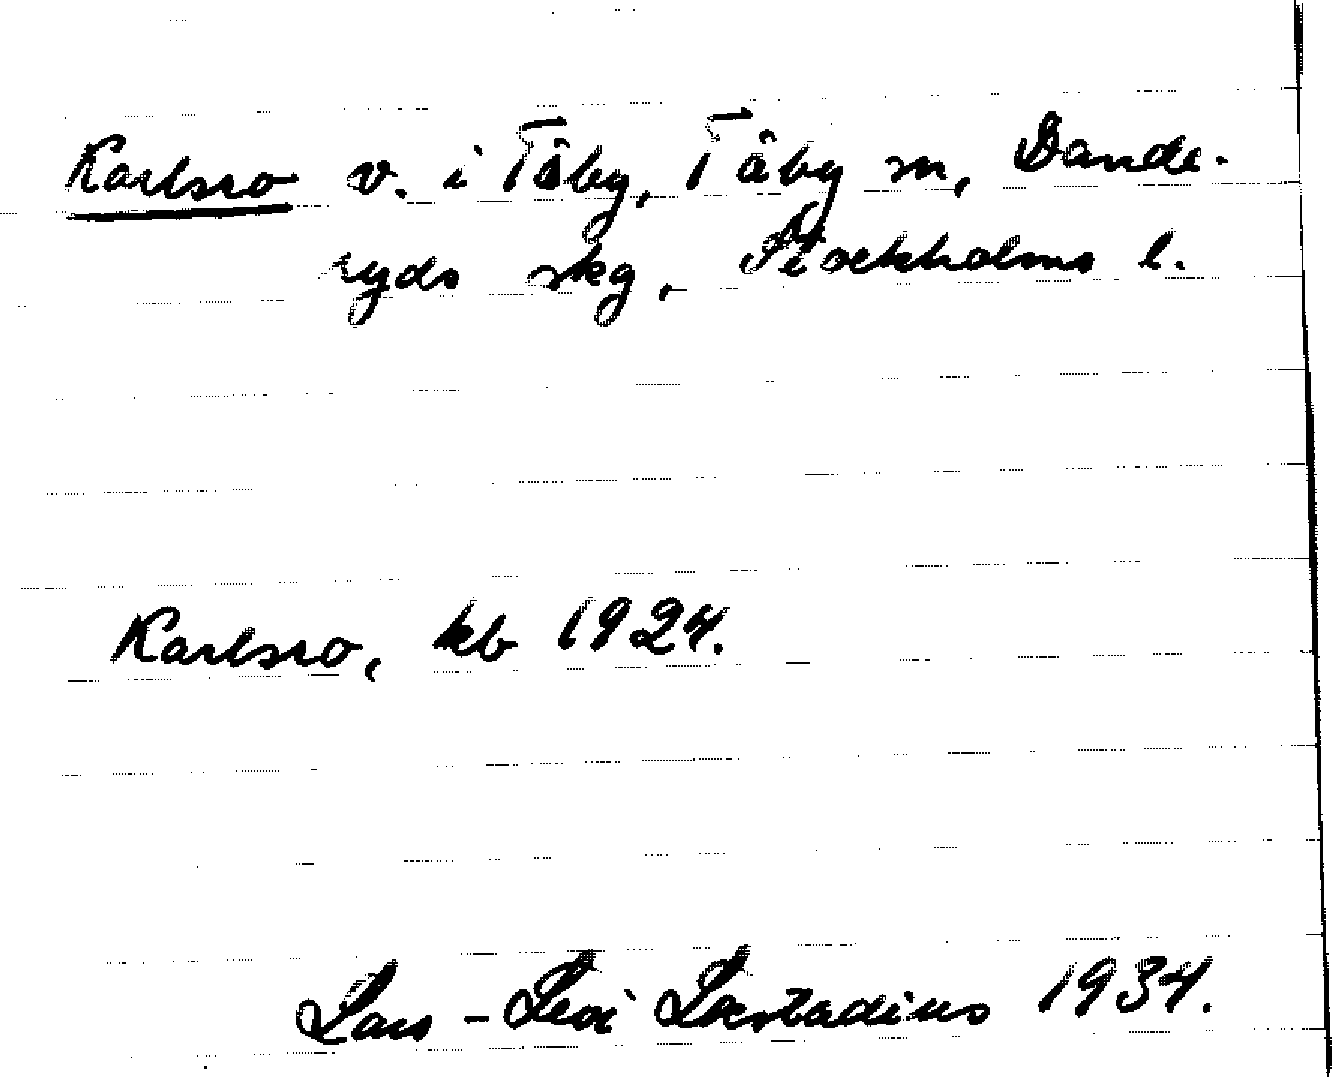 Karlsro v. i Täby, Täby sn, Dande-
ryds skg, Stockholms l.
Karlsro, kb 1924.
Lars-Levi Læstadius 1934.